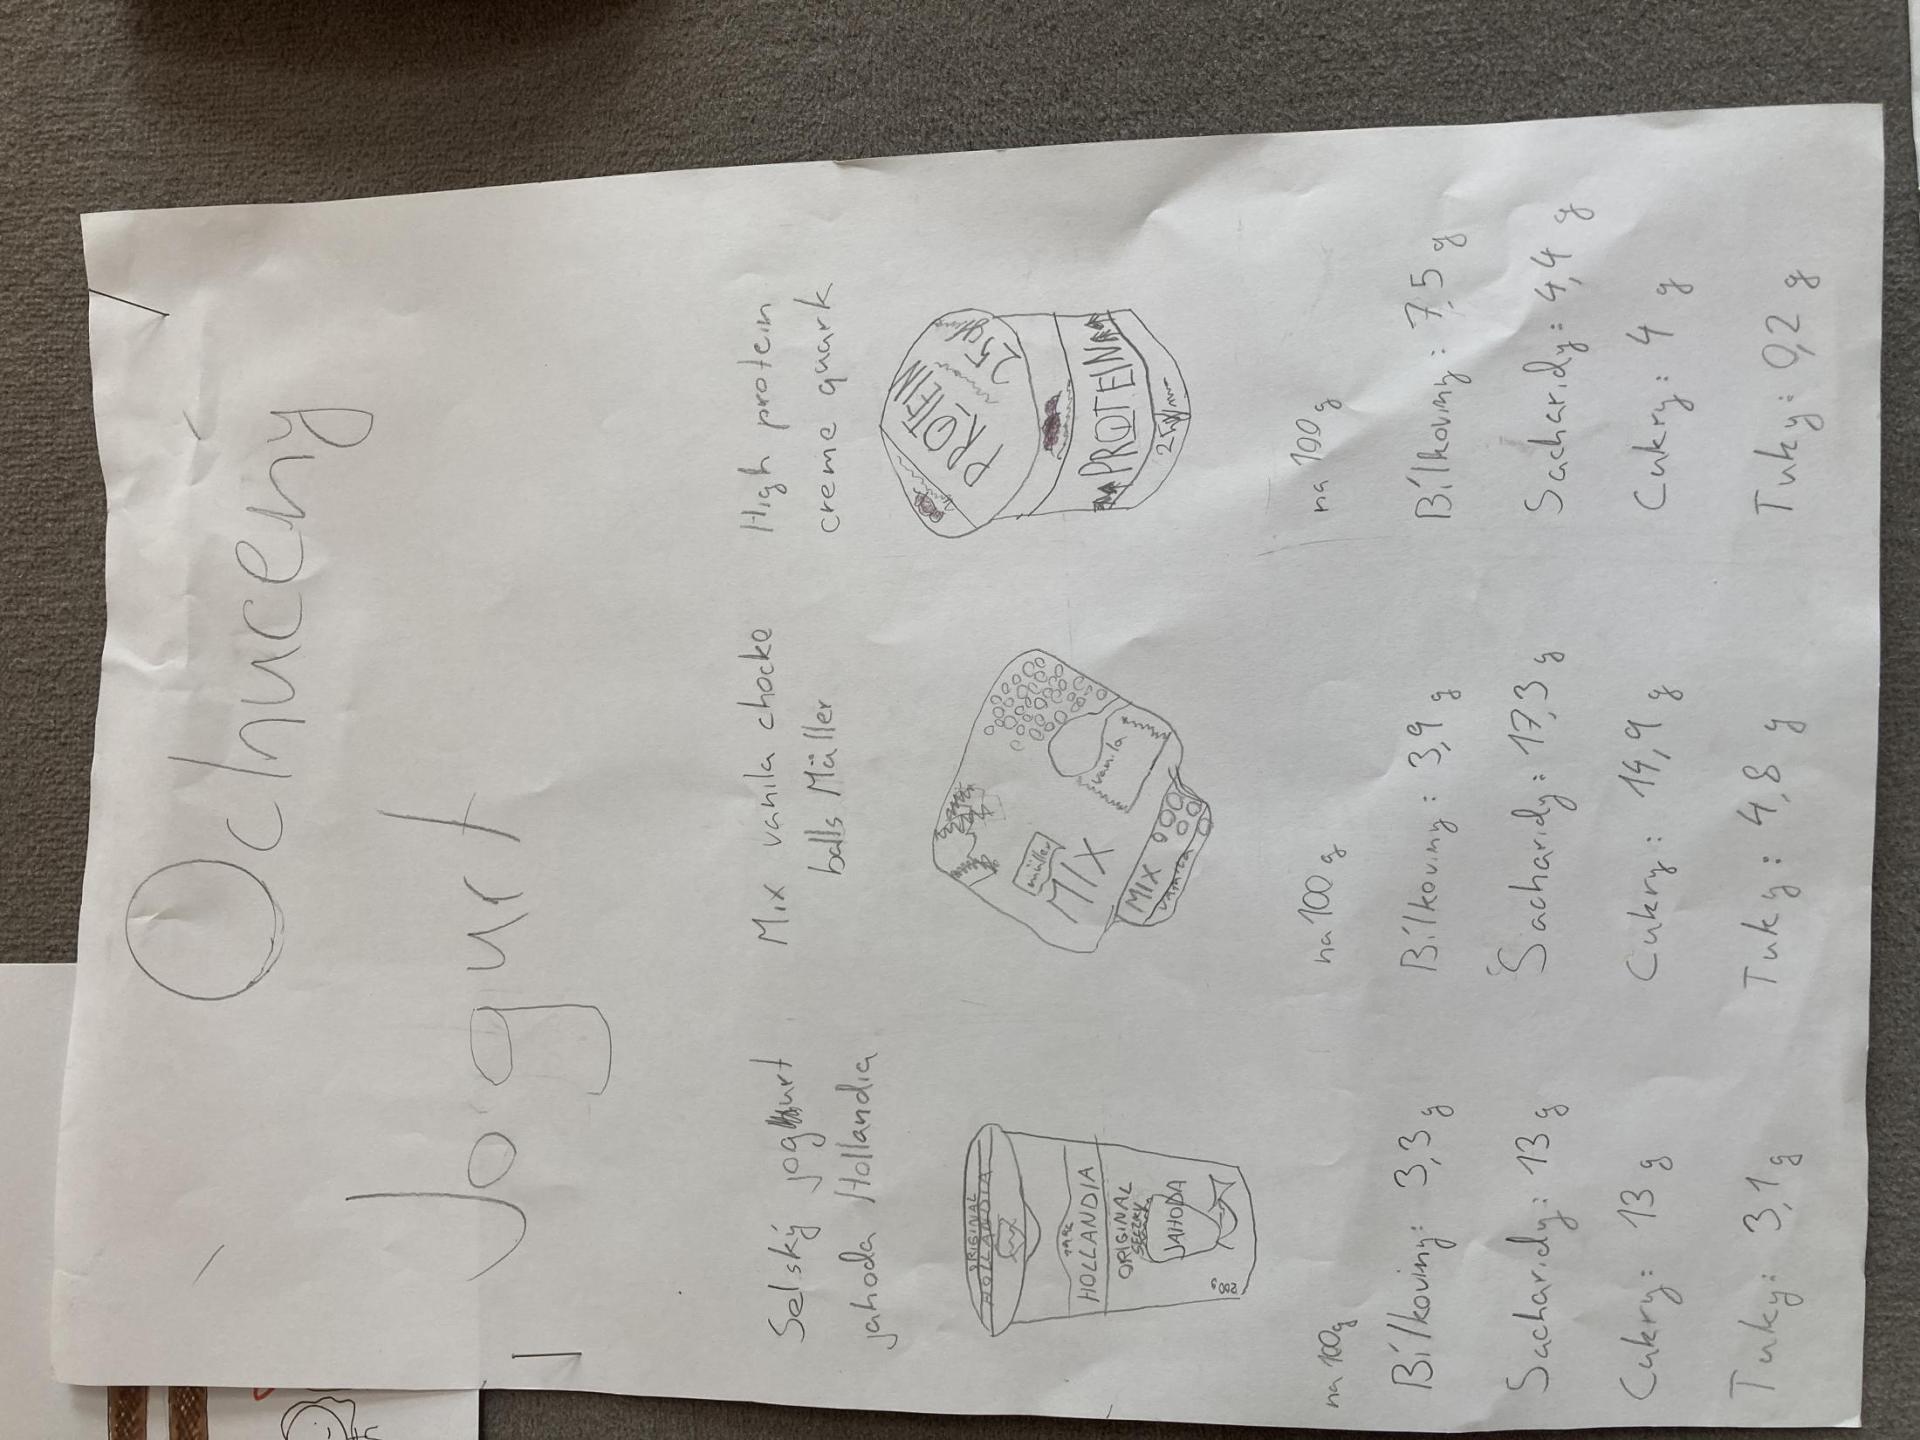 Ochucený
Jogurt
Selský jogurt
jahoda Hollandia
ORIGINAL
HOLLANDIA
HOLLANDIA
ORIGINAL
JAHODA
200g
na 100g
Bílkoviny: 3,3 g
Sacharidy: 13 g
Cukry: 13 g
Tuky: 3,1 g
Mix vanila chocke
balls Müller
müller
MIX
vanila
MIX
na 100 g
Bílkoviny: 3,9 g
Sacharidy: 17,3 g
Cukry: 14,9 g
Tuky: 4,8 g
High protein
creme quark
PROTEIN
25g
PROTEIN
25g
na 100 g
Bílkoviny: 7,5 g
Sacharidy: 4,4 g
Cukry: 4 g
Tuky: 0,2 g